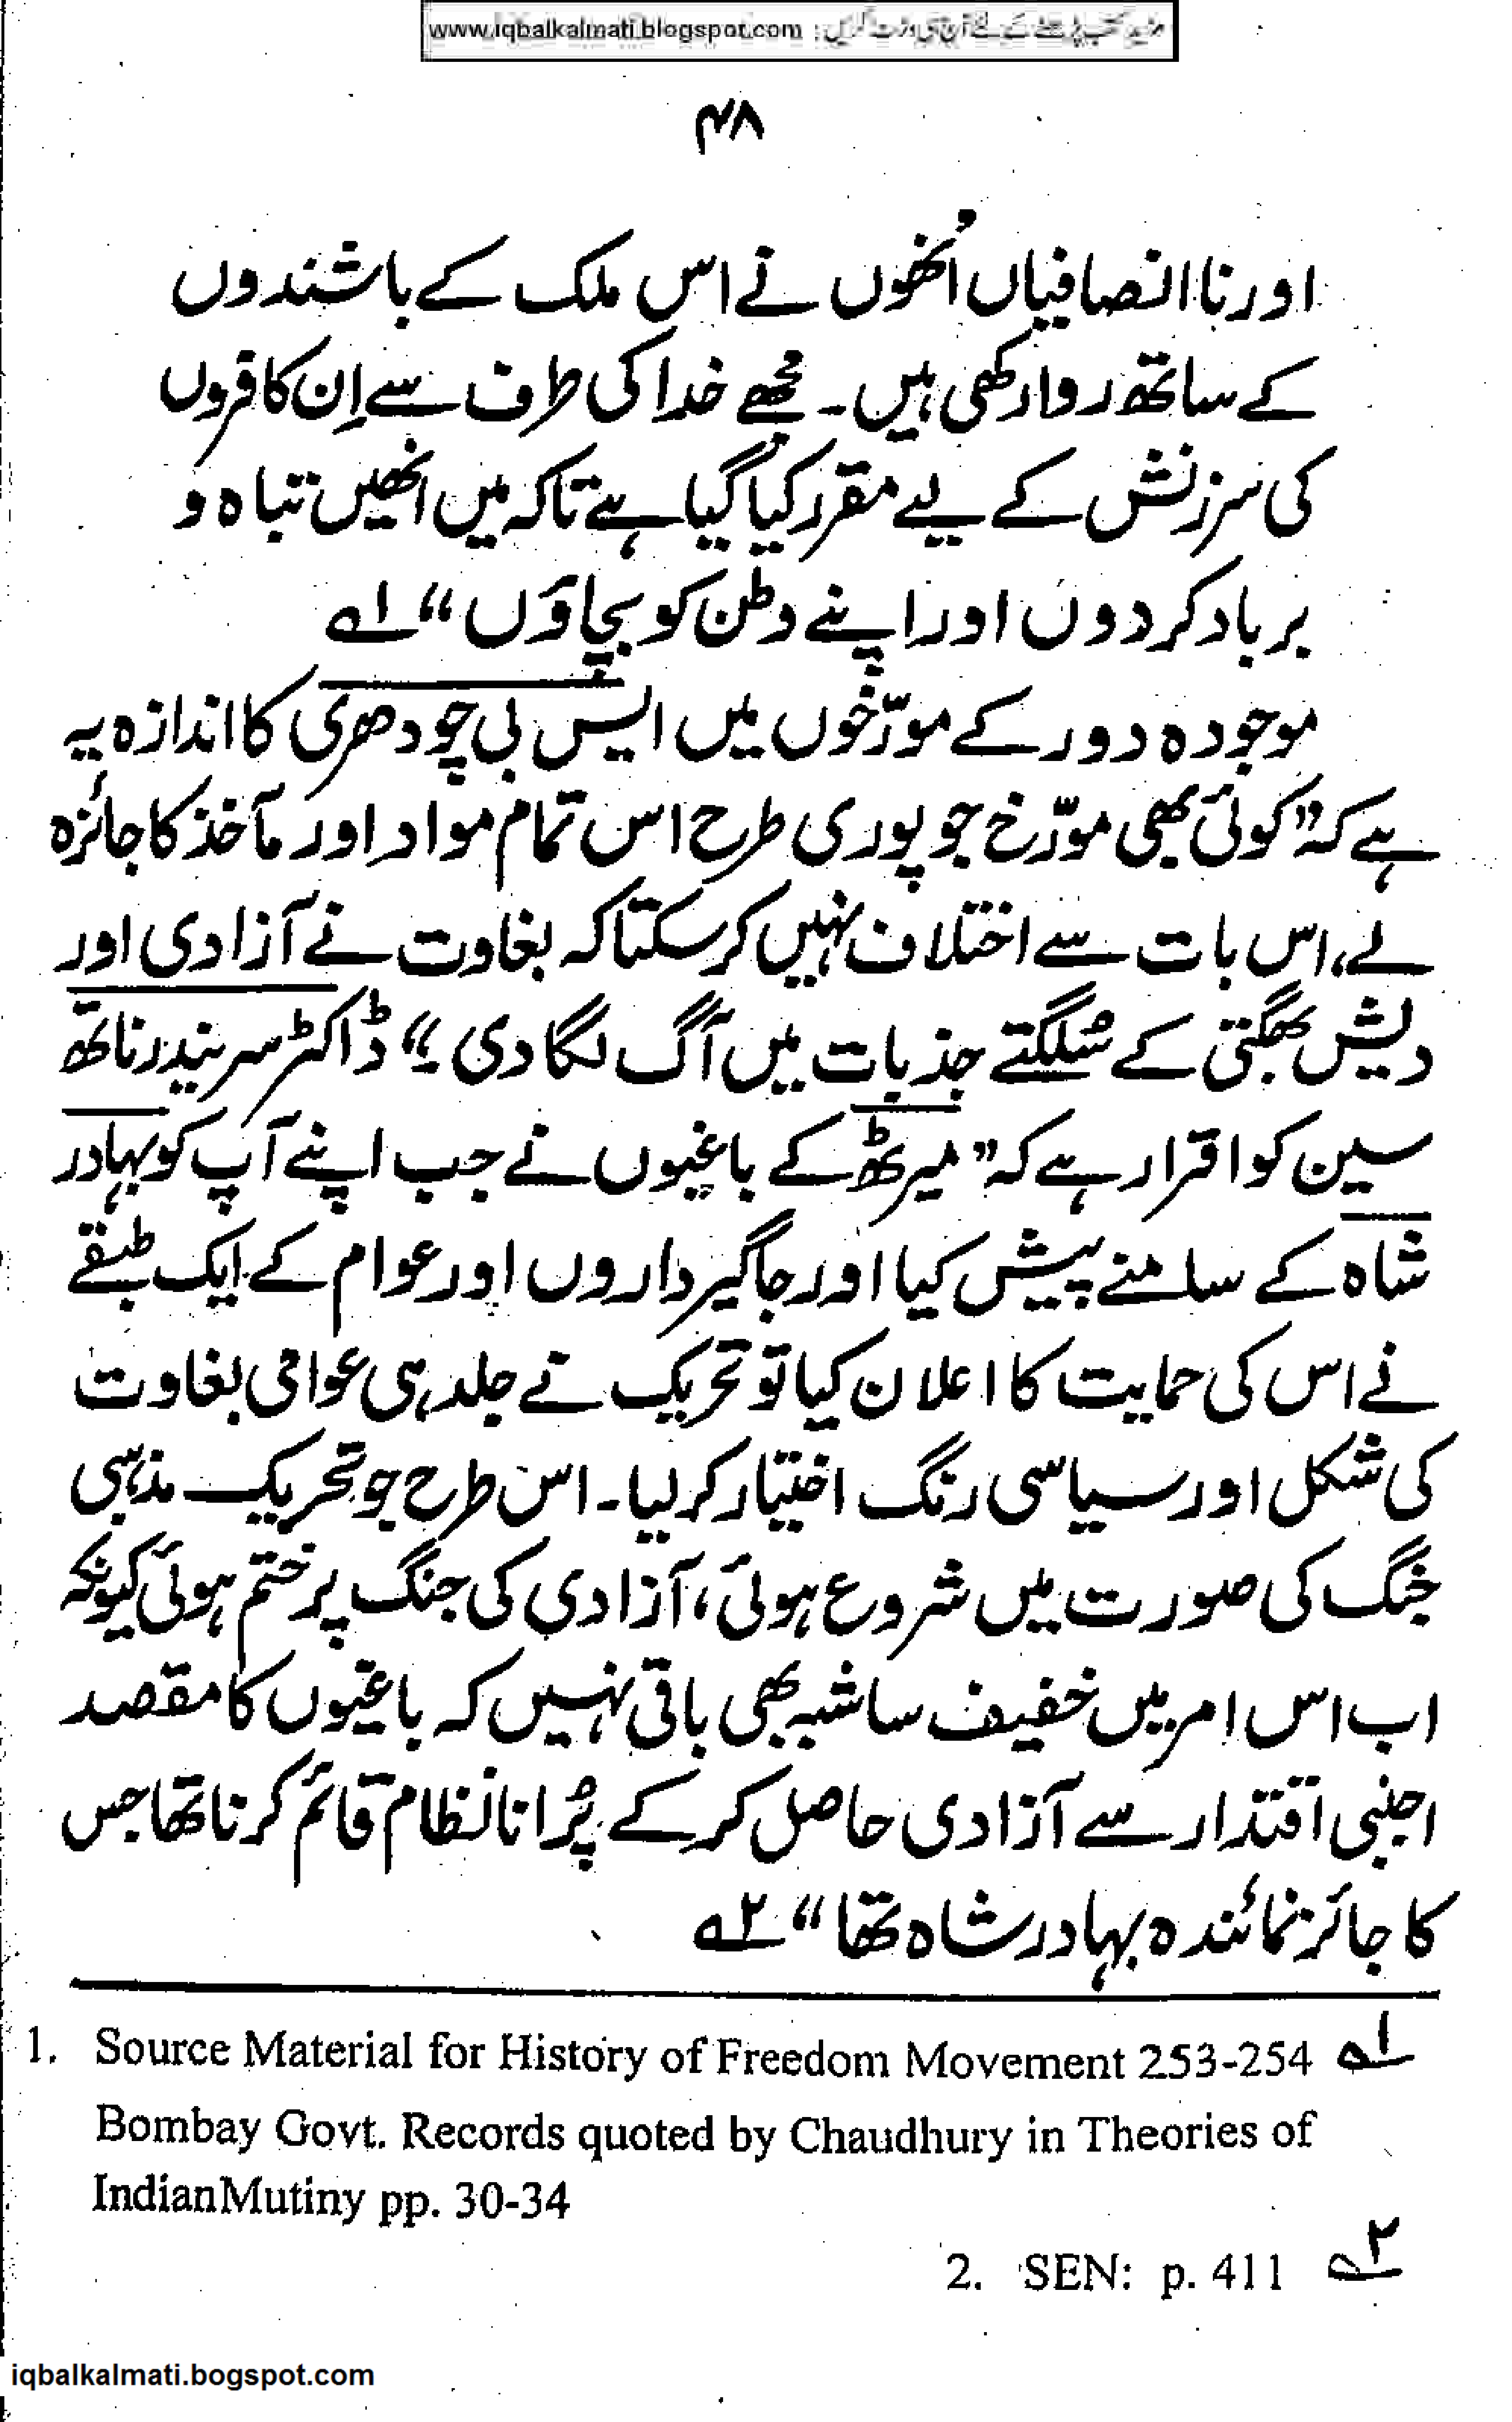 www.iqbalkalmati.blogspot.com : مزید کتب پڑھنے کے لئے آج ہی وزٹ کریں
۴۸
اور ناانصافیاں اُنھوں نے اس ملک کے باشندوں
کے ساتھ روا رکھی ہیں۔ مجھے خدا کی طرف سے اِن کافروں
کی سرزنش کے لیے مقرر کیا گیا ہے تاکہ میں انھیں تباہ و
برباد کردوں اور اپنے وطن کو بچاؤں“ ۱ـہ
موجودہ دور کے مورّخوں میں ایس بی چودھری کا اندازہ یہ
ہے کہ ”کوئی بھی مورّخ جو پوری طرح اس تمام مواد اور مآخذ کا جائزہ
لے، اس بات سے اختلاف نہیں کرسکتا کہ بغاوت نے آزادی اور
دیش بھگتی کے سُلگتے جذبات میں آگ لگا دی۔“ ڈاکٹر سریندر ناتھ
سین کو اقرار ہے کہ ”میرٹھ کے باغیوں نے جب اپنے آپ کو بہادر
شاہ کے سامنے پیش کیا اور جاگیرداروں اور عوام کے ایک طبقے
نے اس کی حمایت کا اعلان کیا تو تحریک نے جلد ہی عوامی بغاوت
کی شکل اور سیاسی رنگ اختیار کرلیا۔ اس طرح جو تحریک مذہبی
جنگ کی صورت میں شروع ہوئی، آزادی کی جنگ پر ختم ہوئی کیونکہ
اب اس امر میں خفیف سا شبہ بھی باقی نہیں کہ باغیوں کا مقصد
اجنبی اقتدار سے آزادی حاصل کرکے پُرانا نظام قائم کرنا تھا جس
کا جائز نمائندہ بہادر شاہ تھا“ ۲ـہ
1. Source Material for History of Freedom Movement 253-254 ۱ـہ
Bombay Govt. Records quoted by Chaudhury in Theories of
IndianMutiny pp. 30-34
2. SEN: p. 411 ۲ـہ
iqbalkalmati.bogspot.com